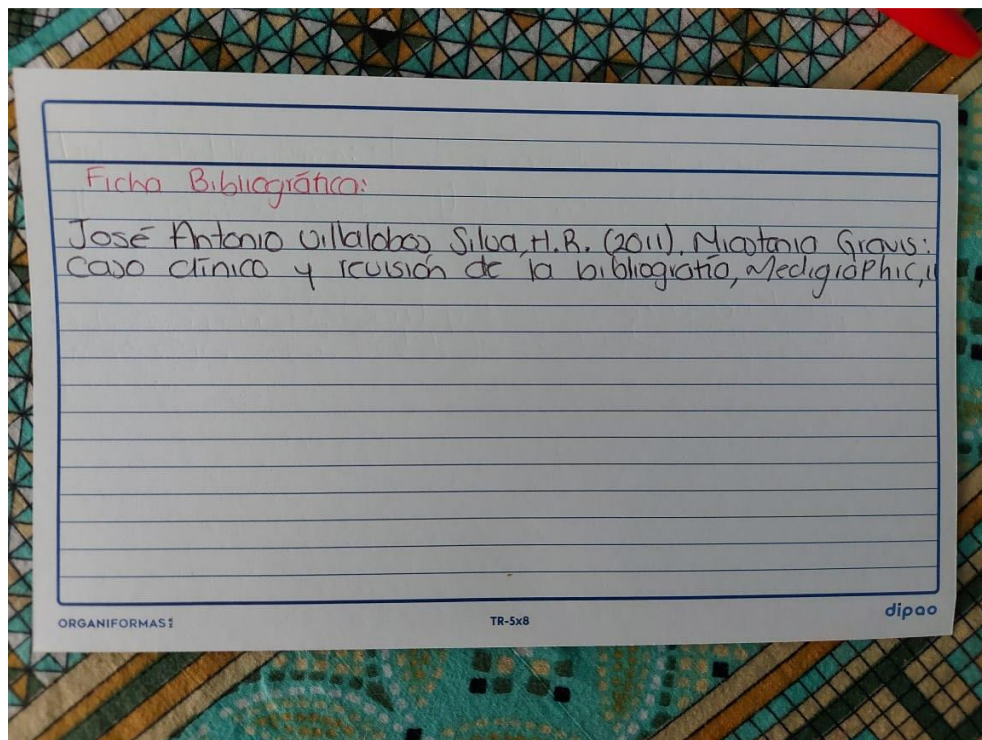 Ficha Bibliográfica:
José Antonio Villalobos Silva, H.R. (2011). Miastania Gravis:
Caso clínico y revisión de la bibliografía, Medigráphic, 
ORGANIFORMAS
TR-5x8
dipao